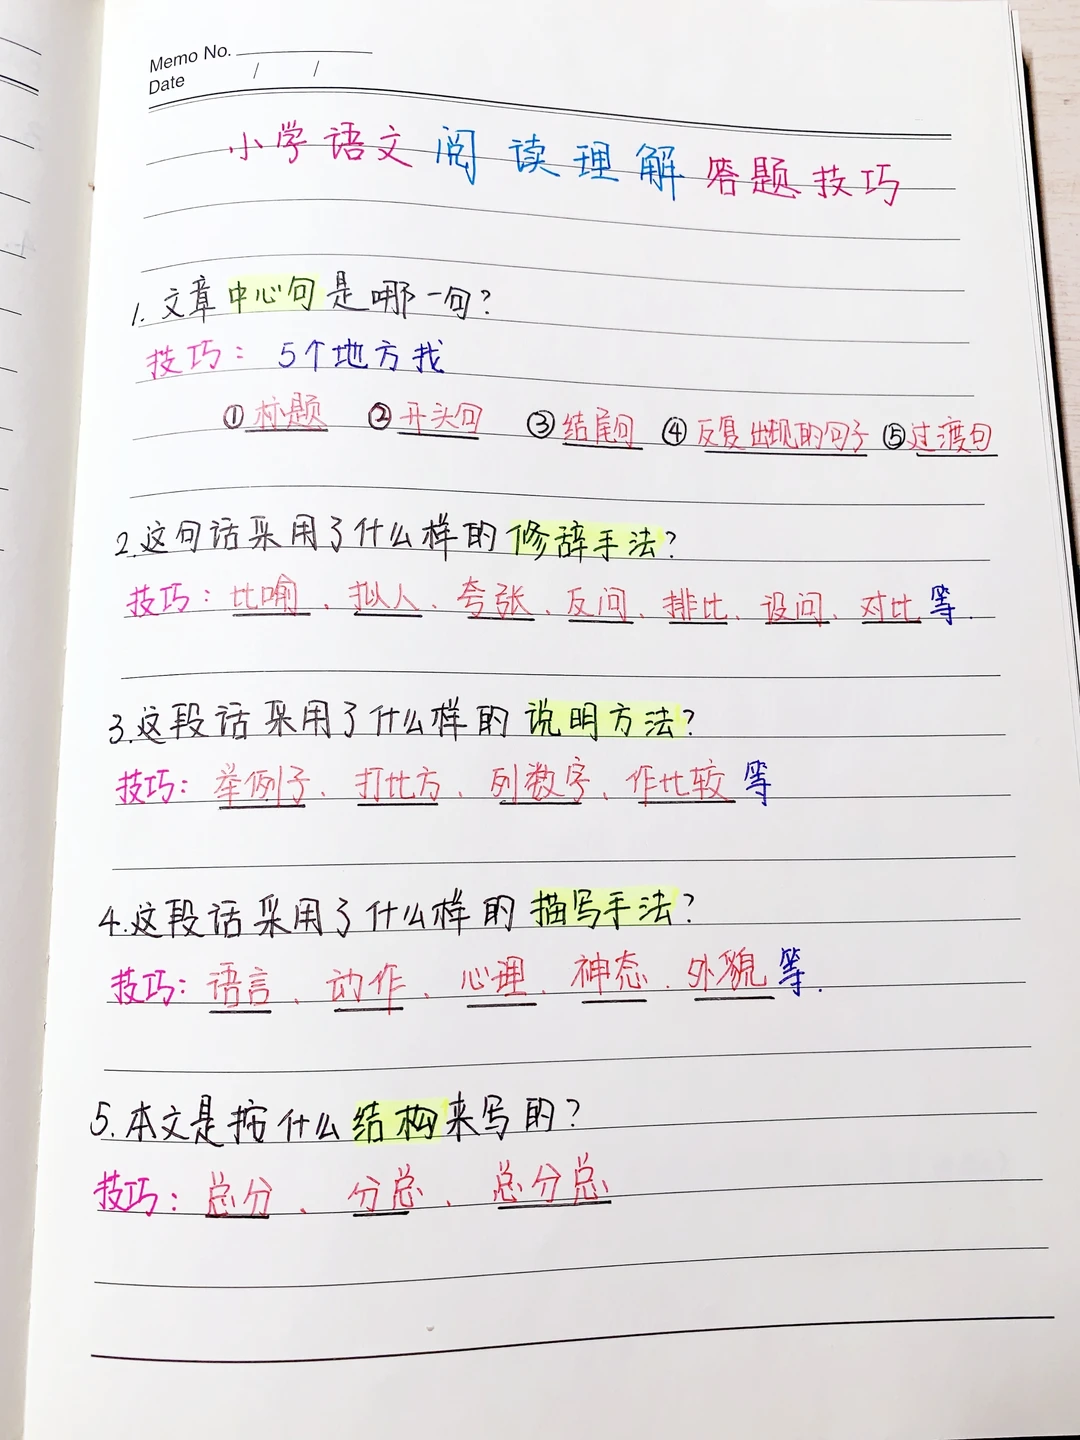 Memo No.
Date / /
小学语文阅读理解答题技巧
1.文章中心句是哪一句?
技巧: 5个地方找
①标题 ②开头句 ③结尾句 ④反复出现的句子 ⑤过渡句
2.这句话采用了什么样的修辞手法?
技巧: 比喻、拟人、夸张、反问、排比、设问、对比等.
3.这段话采用了什么样的说明方法?
技巧: 举例子、打比方、列数字、作比较等
4.这段话采用了什么样的描写手法?
技巧: 语言、动作、心理、神态、外貌等.
5.本文是按什么结构来写的?
技巧: 总分、分总、总分总